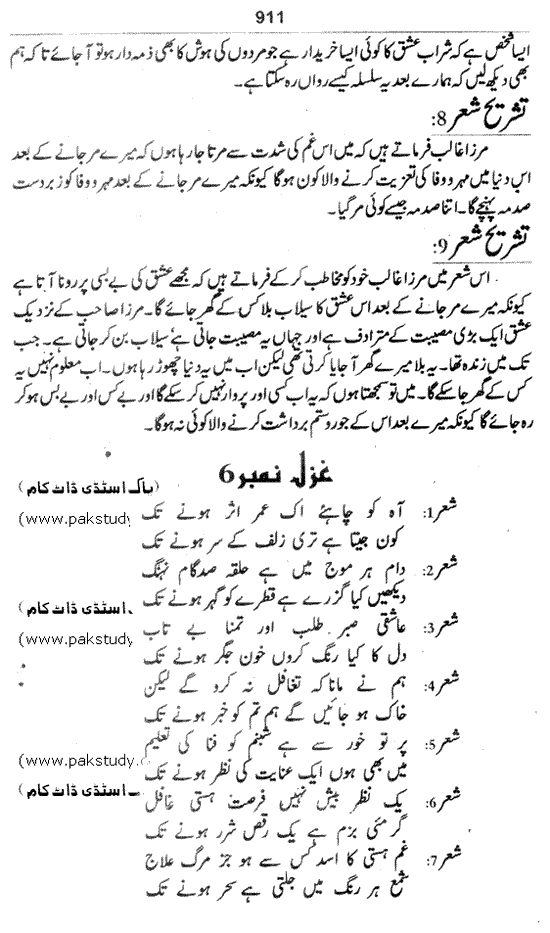 911
ایسا شخص ہے کہ شراب عشق کا کوئی ایسا خریدار ہے جو مردوں کی ہوش کا بھی ذمہ دار ہو تو آ جائے تا کہ ہم
بھی دیکھ لیں کہ ہمارے بعد یہ سلسلہ کیسے رواں رہ سکتا ہے۔
تشریح شعر 8:
مرزا غالب فرماتے ہیں کہ میں اس غم کی شدت سے مرتا جا رہا ہوں کہ میرے مر جانے کے بعد
اس دنیا میں مہر و وفا کی تعزیت کرنے والا کون ہوگا کیونکہ میرے مر جانے کے بعد مہر و وفا کو زبردست
صدمہ پہنچے گا۔ اتنا صدمہ جیسے کوئی مر گیا۔
تشریح شعر 9:
اس شعر میں مرزا غالب خود کو مخاطب کر کے فرماتے ہیں کہ مجھے عشق کی بے بسی پر رونا آتا ہے
کیونکہ میرے مر جانے کے بعد اس عشق کا سیلاب بلا کس کے گھر جائے گا۔ مرزا صاحب کے نزدیک
عشق ایک بڑی مصیبت کے مترادف ہے اور جہاں یہ مصیبت جاتی ہے، سیلاب بن کر جاتی ہے۔ جب
تک میں زندہ تھا۔ یہ بلا میرے گھر آ جایا کرتی تھی لیکن اب میں یہ دنیا چھوڑ رہا ہوں۔ اب معلوم نہیں یہ
کس کے گھر جا سکے گا۔ میں تو سمجھتا ہوں کہ یہ اب کسی اور پر وار نہیں کر سکے گا اور بے کس اور بے بس ہو کر
رہ جائے گا کیونکہ میرے بعد اس کے جور و ستم برداشت کرنے والا کوئی نہ ہوگا۔
غزل نمبر 6
(پاک اسٹڈی ڈاٹ کام)
شعر 1: آہ کو چاہئے اک عمر اثر ہونے تک
(www.pakstudy
کون جیتا ہے تری زلف کے سر ہونے تک
شعر 2: دام ہر موج میں ہے حلقہ صد گام نہنگ
دیکھیں کیا گزرے ہے قطرے کو گہر ہونے تک
اسٹڈی ڈاٹ کام)
شعر 3: عاشقی صبر طلب اور تمنا بے تاب
(www.pakstudy
دل کا کیا رنگ کروں خون جگر ہونے تک
شعر 4: ہم نے مانا کہ تغافل نہ کرو گے لیکن
خاک ہو جائیں گے ہم تم کو خبر ہونے تک
شعر 5: پر تو خور سے ہے شبنم کو فنا کی تعلیم
(www.pakstudy.
میں بھی ہوں ایک عنایت کی نظر ہونے تک
اسٹڈی ڈاٹ کام)
شعر 6: یک نظر بیش نہیں فرصت ہستی غافل
گرمئی بزم ہے یک رقص شرر ہونے تک
شعر 7: غم ہستی کا اسد کس سے ہو جز مرگ علاج
شمع ہر رنگ میں جلتی ہے سحر ہونے تک